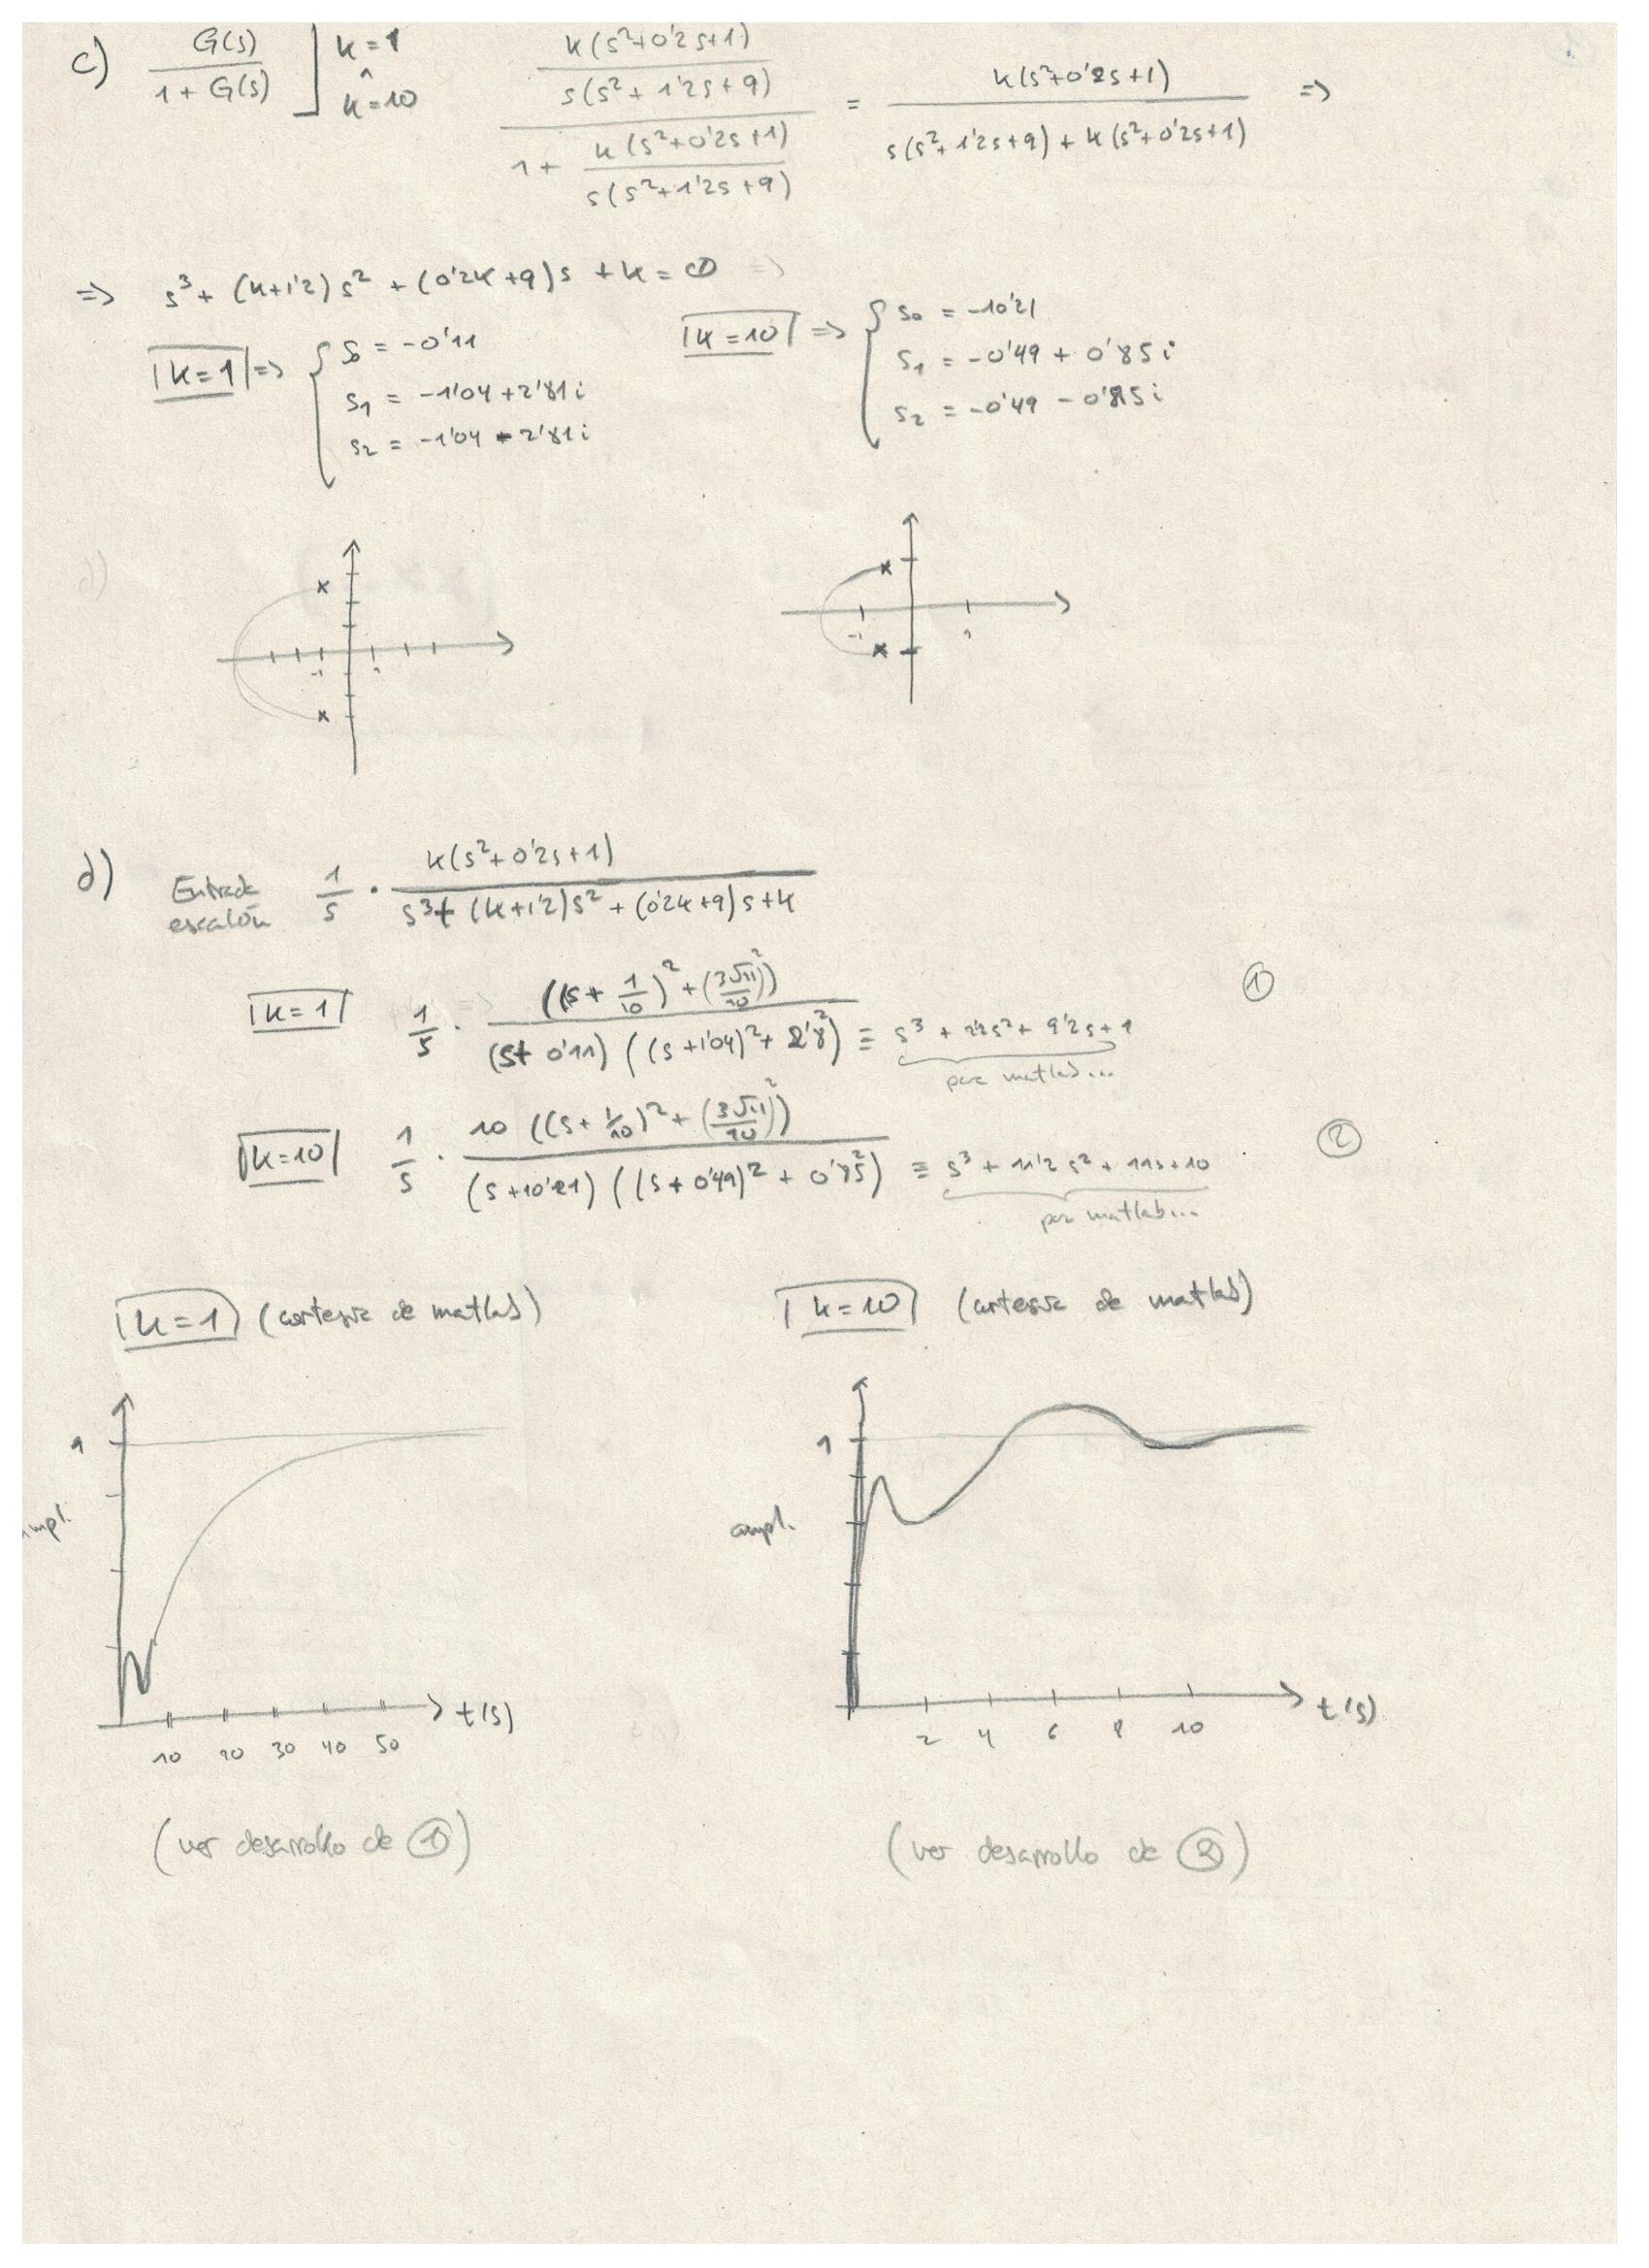 c) G(s) / (1 + G(s)) ] k=1 ^ k=10   (k(s²+0'2s+1) / s(s²+1'2s+9)) / (1 + k(s²+0'2s+1) / s(s²+1'2s+9)) = k(s²+0'2s+1) / (s(s²+1'2s+9) + k(s²+0'2s+1)) =>
=> s³ + (k+1'2)s² + (0'2k+9)s + k = 0 =>
k=1 => { s₀ = -0'11
s₁ = -1'04+2'81i
s₂ = -1'04-2'81i
k=10 => { s₀ = -10'21
s₁ = -0'49 + 0'85i
s₂ = -0'49 - 0'85i
d)
-1 1
-1 1
d) Entrada escalón 1/s · k(s²+0'2s+1) / (s³+(k+1'2)s²+(0'2k+9)s+k)
k=1 1/s · ((s+1/10)²+(3√11/10)²) / ((s+0'11)((s+1'04)²+2'8²)) ≡ s³+2'2s²+9'2s+1 ①
para matlab...
k=10 1/s · 10((s+1/10)²+(3√11/10)²) / ((s+10'21)((s+0'49)²+0'85²)) ≡ s³+11'2s²+11s+10 ②
para matlab...
k=1 (cortesía de matlab)
k=10 (cortesía de matlab)
1
ampl.
10 20 30 40 50 t(s)
1
ampl.
2 4 6 8 10 t(s)
(ver desarrollo de ①)
(ver desarrollo de ②)